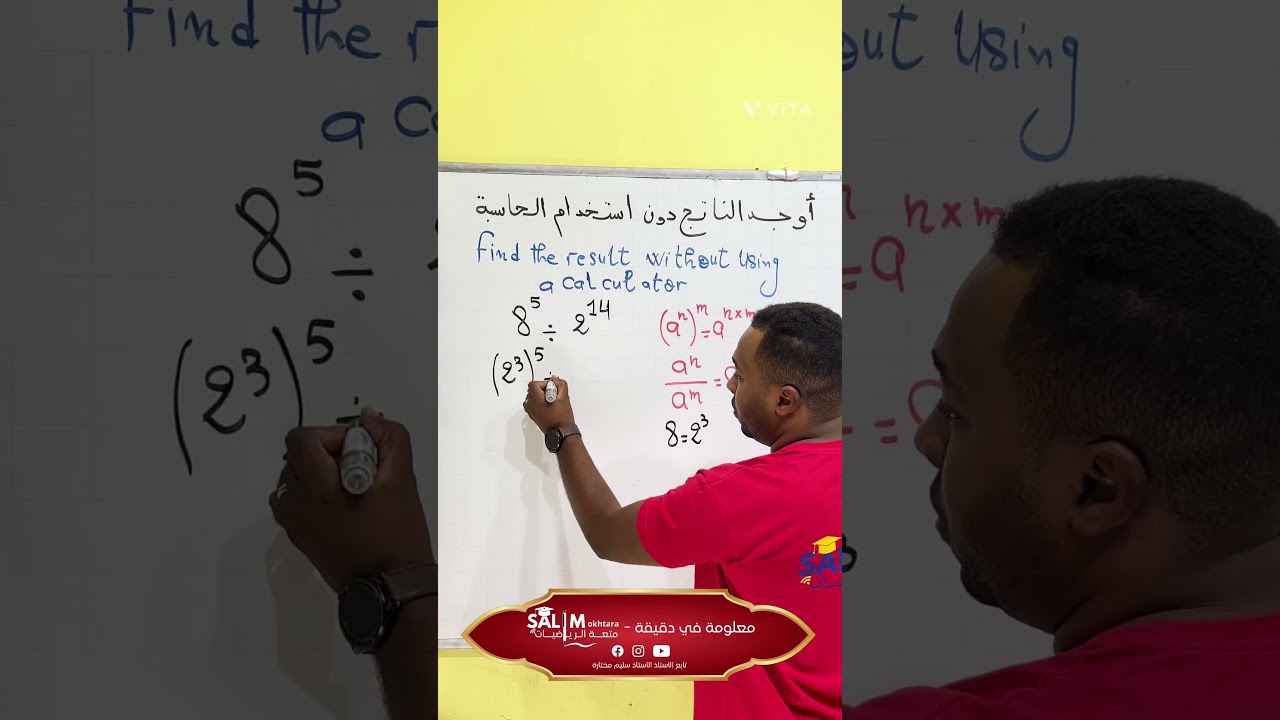 VITA
أوجد الناتج دون استخدام الحاسبة
find the result without using
a calculator
8^5 ÷ 2^14
(2^3)^5 ÷
(a^n)^m = a^n×m
a^n / a^m =
8 = 2^3
SALIM okhtara
متعة الرياضيات
معلومة في دقيقة -
تابع الاستاذ الاستاذ سليم مختارة